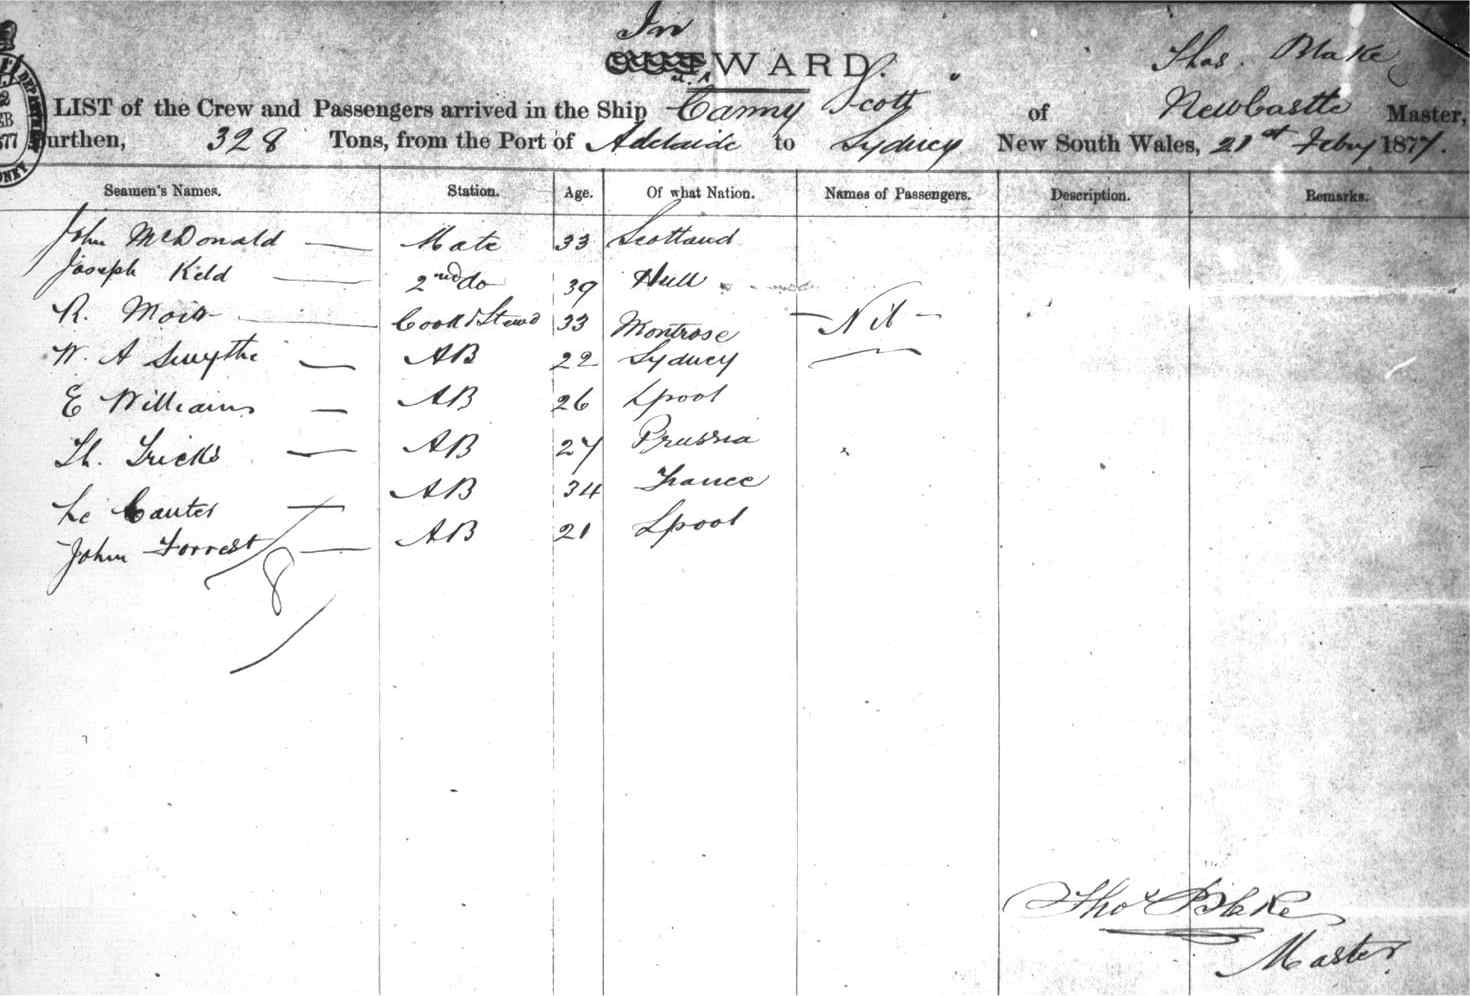 In
WARD.
Thos. Blake
LIST of the Crew and Passengers arrived in the Ship Canny Scott of NewCastle Master,
urthen, 328 Tons, from the Port of Adelaide to Sydney New South Wales, 21st Febry 1877.
Seamen's Names. Station. Age. Of what Nation. Names of Passengers. Description. Remarks.
John McDonald — Mate 33 Scotland
Joseph Keld — 2nd do 39 Hull
R. — Cook & Stewd 33 Montrose — Nil —
W. A Smythe — AB 22 Sydney
E Williams — AB 26 Lpool
Th. Fricks — AB 27 Prussia
Le Cauter — AB 34 France
John Forrest — AB 21 Lpool
8
Thos Blake
Master